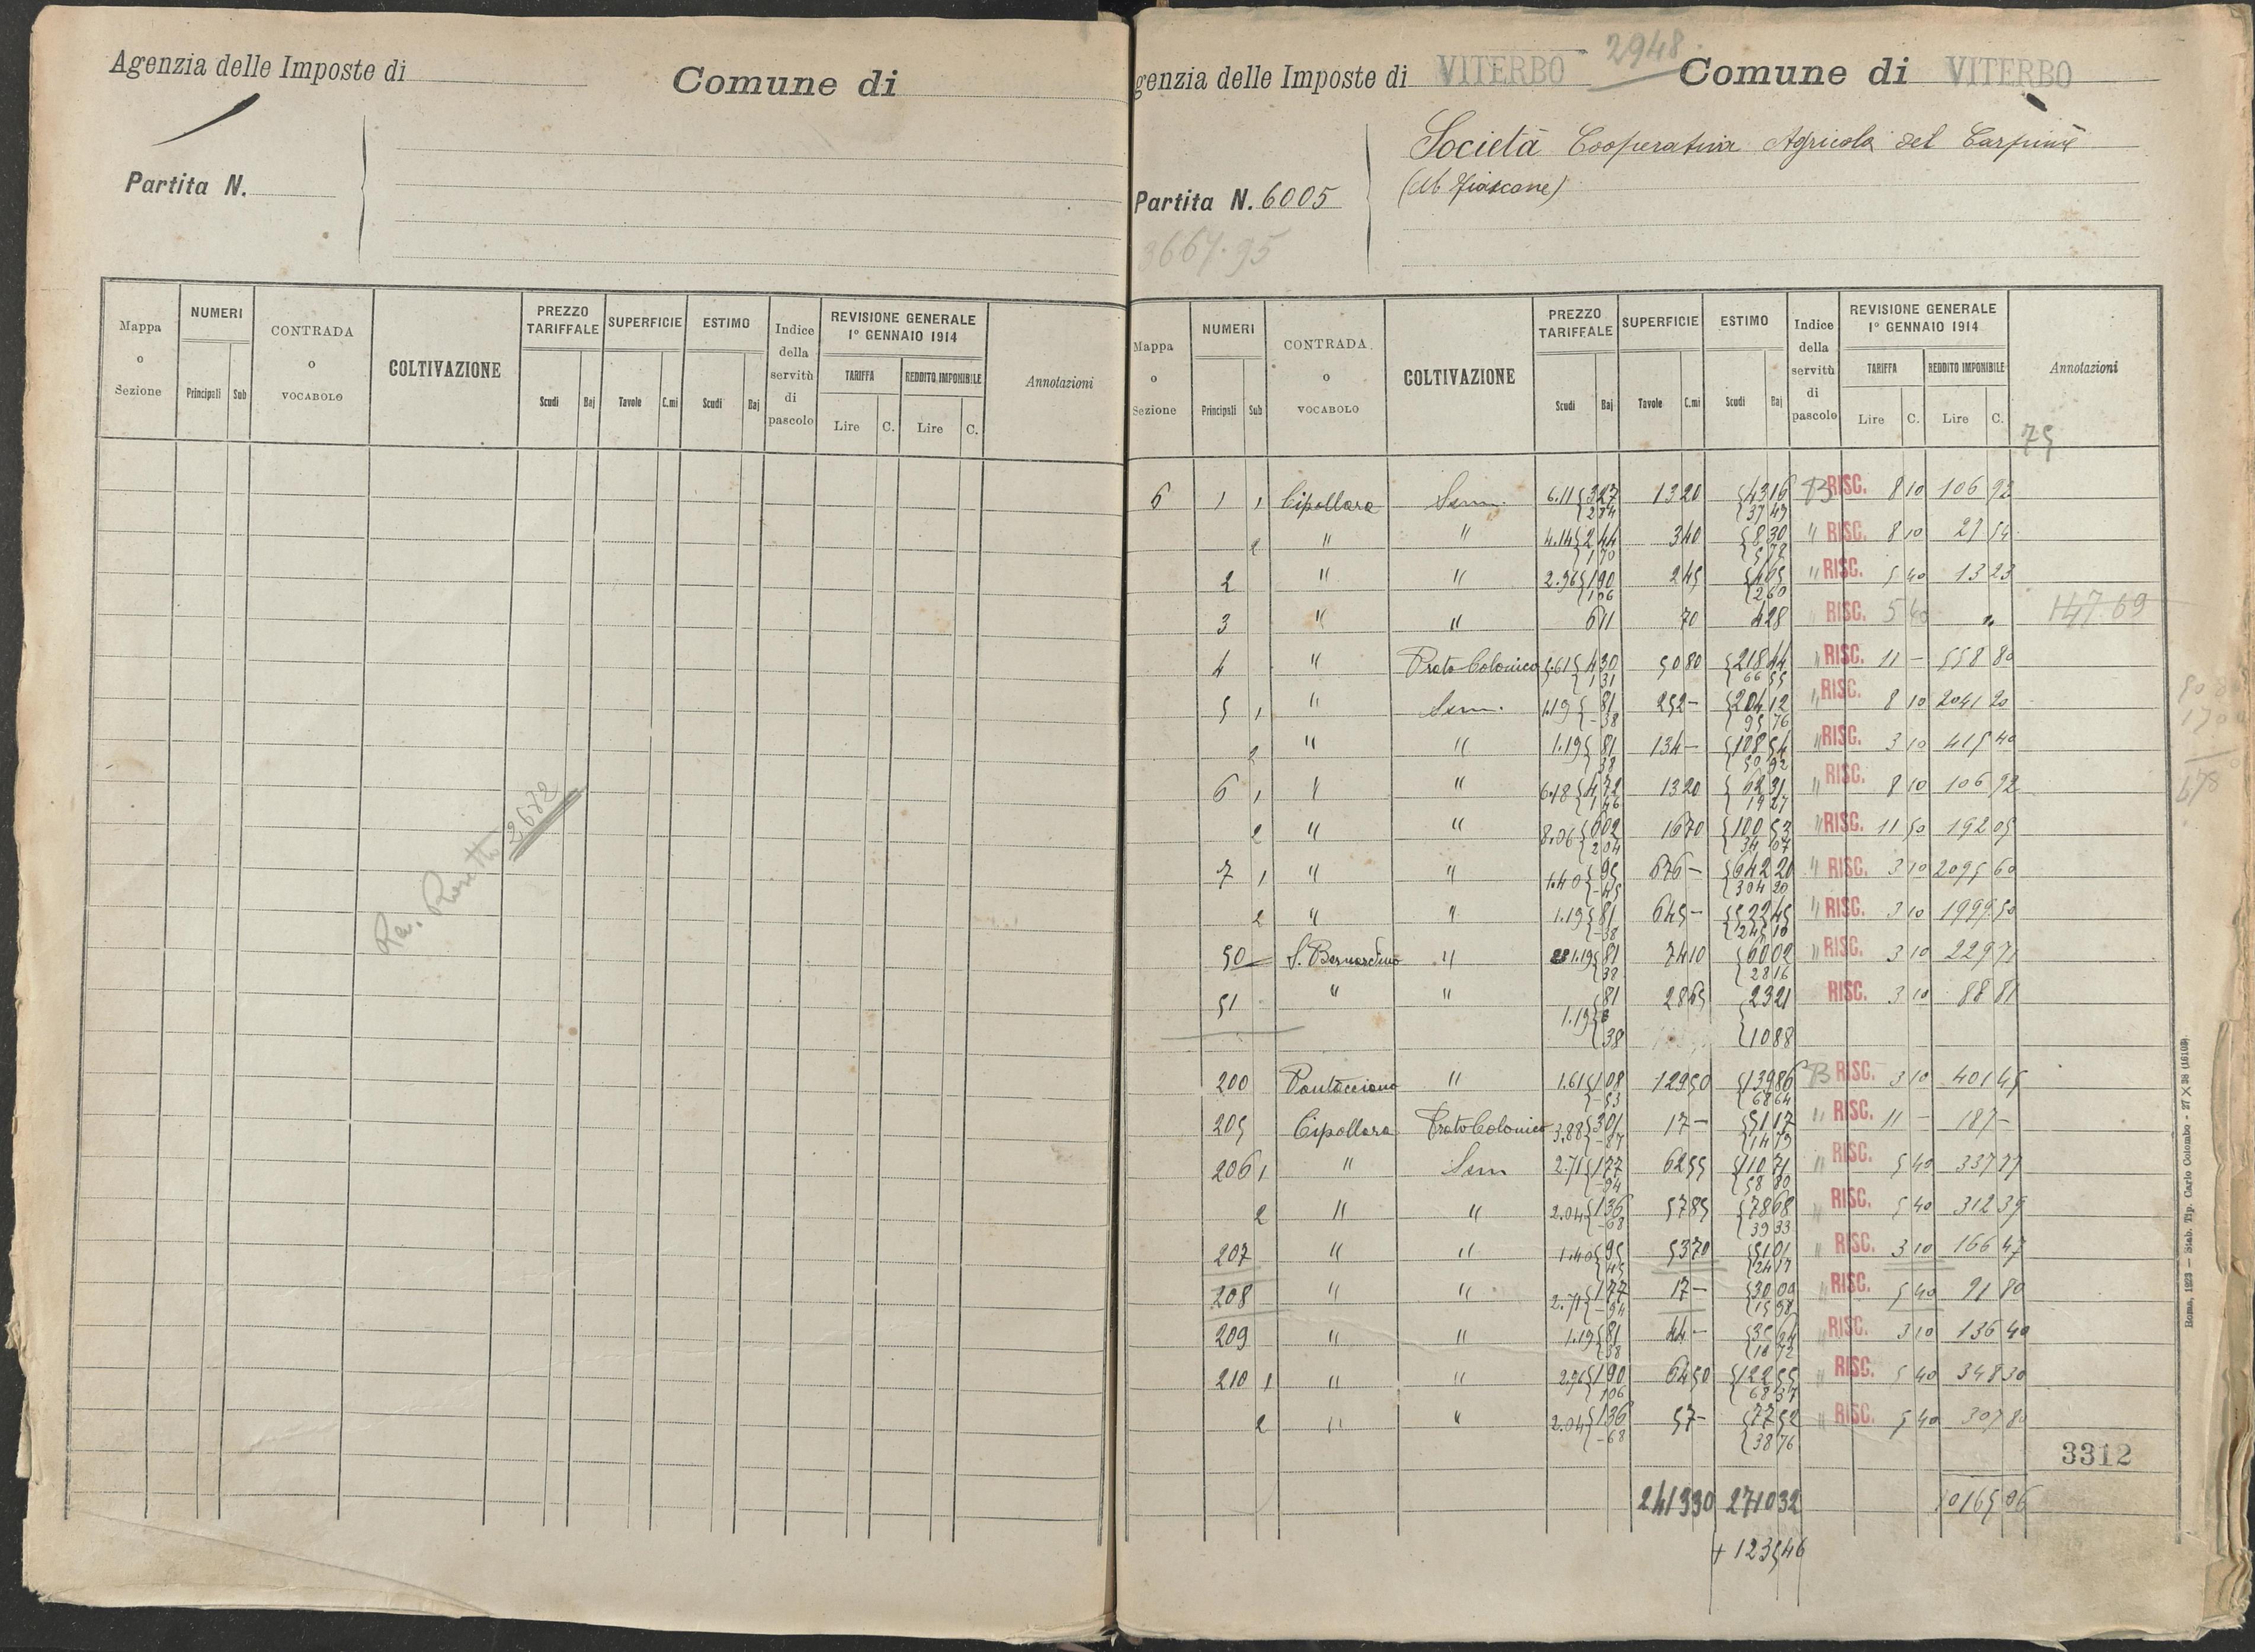 Agenzia delle Imposte di
Comune di
Partita N.
Mappa o Sezione
NUMERI
Principali Sub
CONTRADA o VOCABOLO
COLTIVAZIONE
PREZZO TARIFFALE
Scudi Baj
SUPERFICIE
Tavole C.mi
ESTIMO
Scudi Baj
Indice della servitù di pascolo
REVISIONE GENERALE 1° GENNAIO 1914
TARIFFA
Lire C.
REDDITO IMPONIBILE
Lire C.
Annotazioni
2682
genzia delle Imposte di VITERBO
2948
Comune di VITERBO
Partita N. 6005
Società Cooperativa Agricola del Carpine
3667.95
Mappa o Sezione
NUMERI
Principali Sub
CONTRADA o VOCABOLO
COLTIVAZIONE
PREZZO TARIFFALE
Scudi Baj
SUPERFICIE
Tavole C.mi
ESTIMO
Scudi Baj
Indice della servitù di pascolo
REVISIONE GENERALE 1° GENNAIO 1914
TARIFFA
Lire C.
REDDITO IMPONIBILE
Lire C.
Annotazioni
75
6 1 1 Cipollara Sem. 6.11 3 27 13 20 43 16 B RISC. 8 10 106 92
2 " " 4.14 2 44 3 40 8 30 " RISC. 8 10 27 54
1 70 5 78
2 " " 2.96 1 90 2 45 4 65 " RISC. 5 40 13 23
1 06 2 60
3 " " 6 11 70 4 28 RISC. 5 40 147.69
4 " Prato Colonico 5.61 4 30 50 80 218 44 " RISC. 11 - 558 80
1 31 66 55
5 1 " Sem. 1.19 81 252 - 204 12 " RISC. 8 10 2041 20
38 95 76
2 " " 1.19 81 134 - 108 54 " RISC. 3 10 415 40
38 50 92
6 1 " " 6.18 4 72 13 20 62 31 " RISC. 8 10 106 92
1 46 19 27
2 " " 8.06 6 02 16 70 100 53 " RISC. 11 50 192 05
2 04 34 07
7 1 " " 1.40 95 676 - 642 20 " RISC. 3 10 2095 60
45 304 20
2 " " 1.19 81 645 - 522 45 " RISC. 3 10 1999 50
38 245 10
50 S. Bernardino " 1.19 81 74 10 60 02 " RISC. 3 10 229 71
38 28 16
51 " " 81 28 65 23 21 RISC. 3 10 88 81
1.19
38 10 88
200 Pantacciano " 1.61 1 08 129 50 139 86 B RISC. 3 10 401 45
53 68 64
205 Cipollara Prato Colonico 3.88 3 01 17 - 51 17 " RISC. 11 - 187 -
87 14 79
206 1 " Sem 2.71 1 77 62 55 110 71 " RISC. 5 40 337 77
94 58 80
2 " " 2.04 1 36 57 85 78 68 " RISC. 5 40 312 39
68 39 33
207 " " 1.40 95 53 70 51 01 " RISC. 3 10 166 47
45 24 17
208 " " 2.71 1 77 17 - 30 09 " RISC. 5 40 91 80
94 15 98
209 " " 1.19 81 44 - 35 64 " RISC. 3 10 136 40
38 16 72
210 1 " " 2.96 1 90 64 50 122 55 " RISC. 5 40 348 30
1 06 68 37
2 " " 2.04 1 36 57 - 77 52 " RISC. 5 40 307 80
68 38 76
3312
2413 30 2710 32 10165 06
+ 1235 46
Roma, 1923 — Stab. Tip. Carlo Colombo - 27 X 38 (16109)